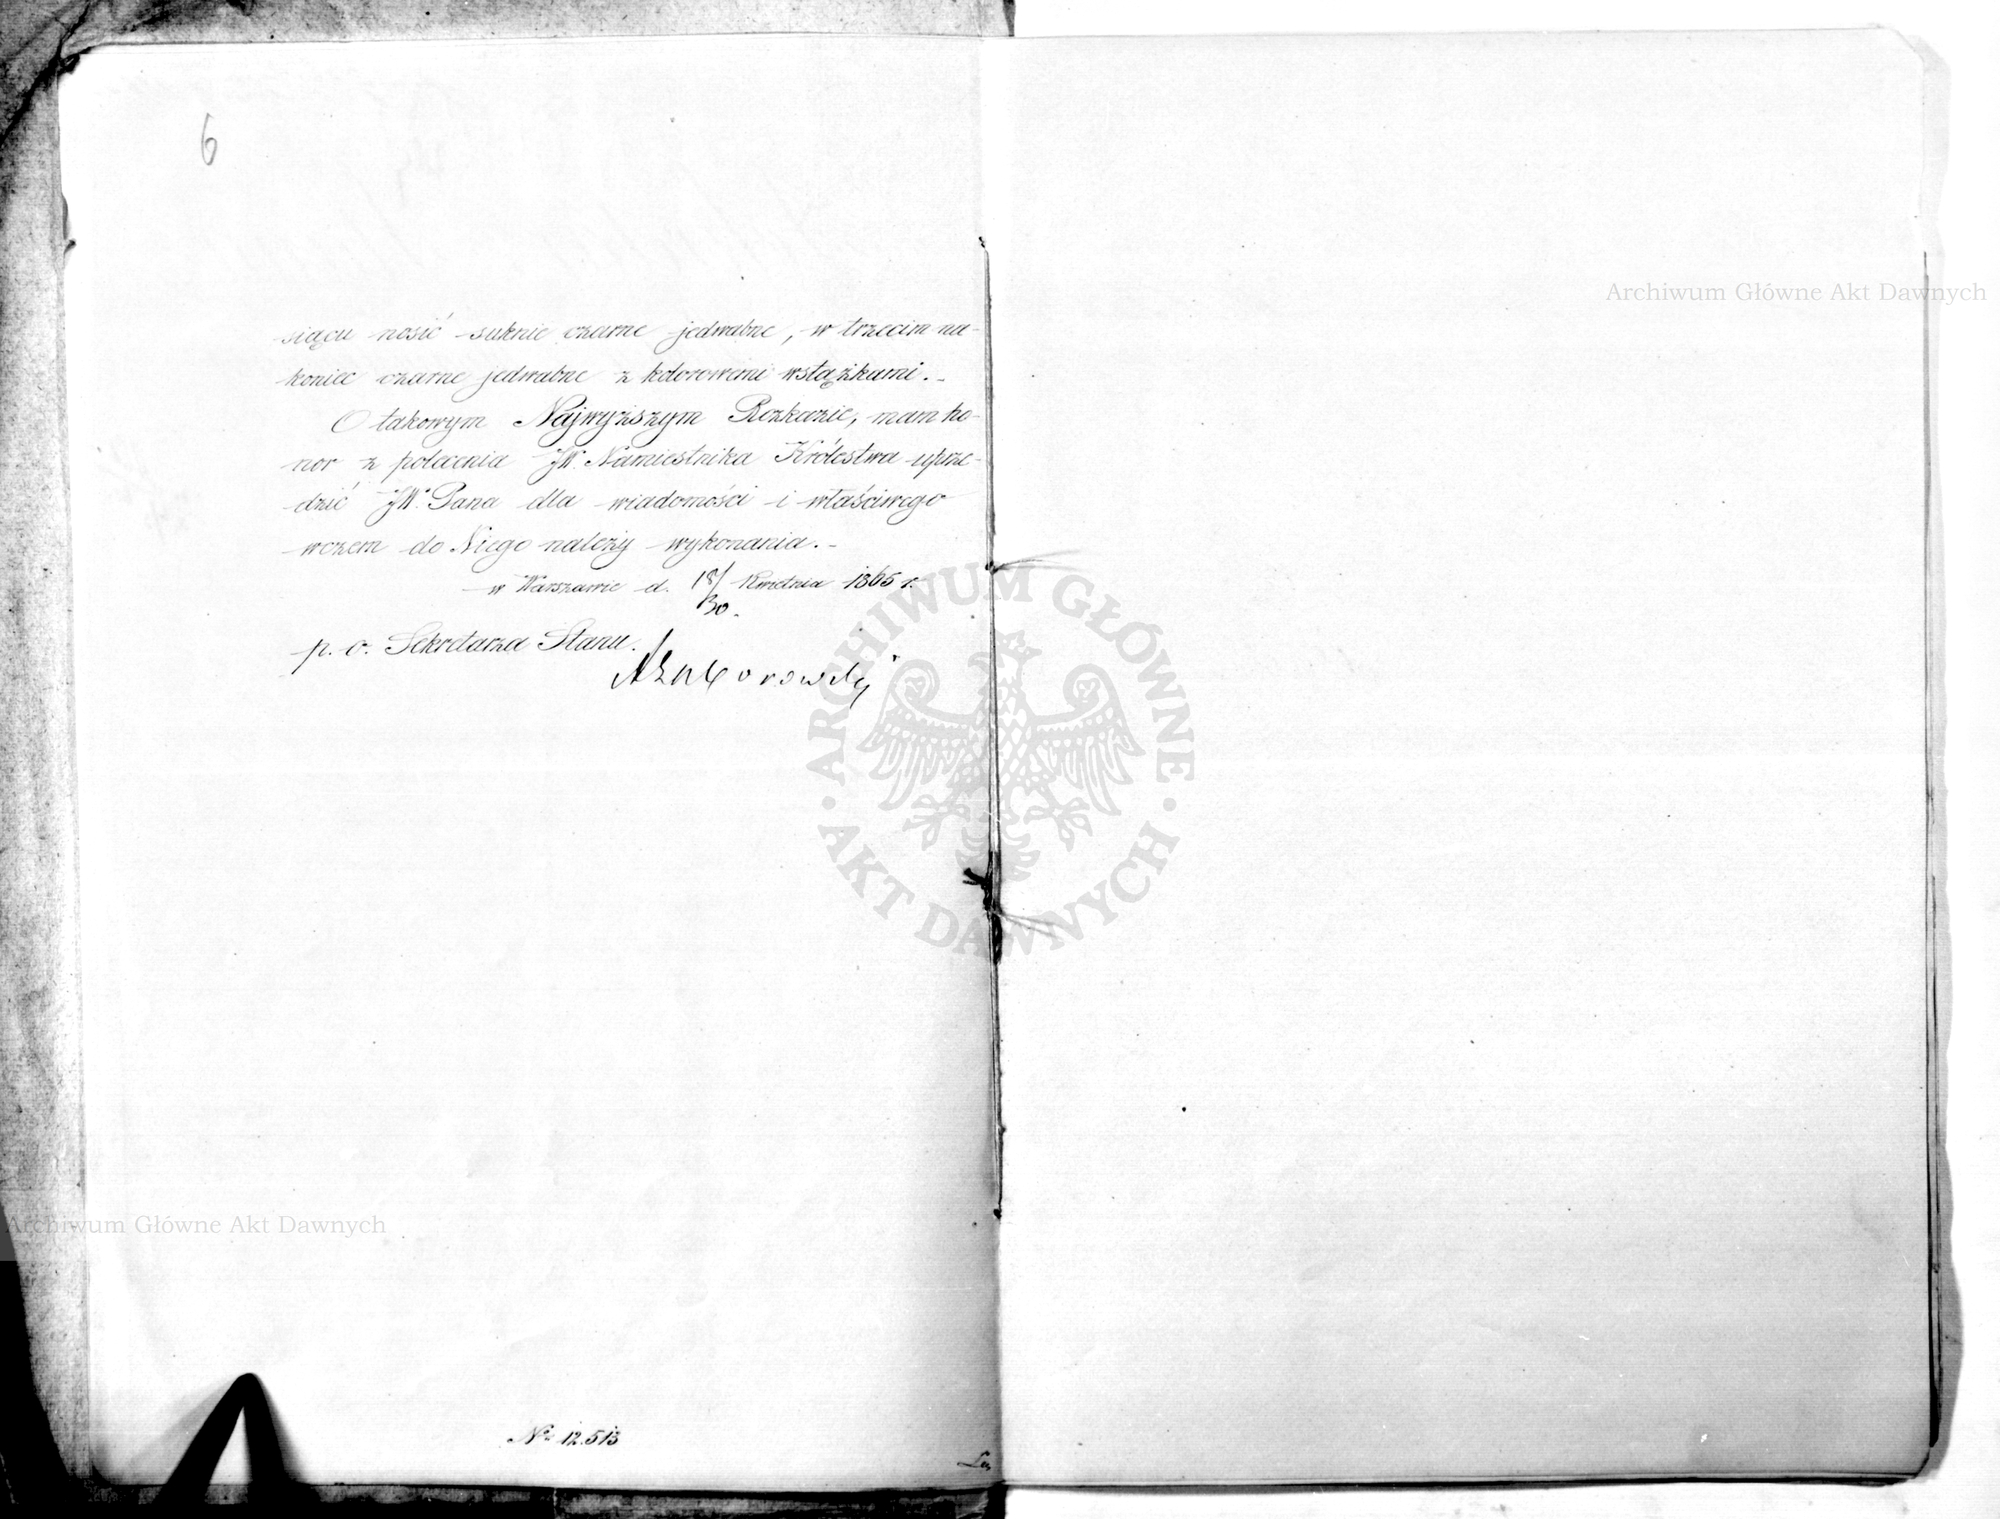 6
siącu nosić suknie czarne jedwabne, w trzecim na-
koniec czarne jedwabne z kolorowemi wstążkami.-
O takowym Najwyższym Rozkazie, mam ho-
nor z polecenia JW. Namiestnika Królestwa uprze-
dzić JW. Pana dla wiadomości i właściwego
wczem do Niego należy wykonania.-
w Warszawie d. 18/30. Kwietnia 1865 r.
p. o. Sekretarza Stanu.
№ 12.513
Archiwum Główne Akt Dawnych
Archiwum Główne Akt Dawnych
ARCHIWUM GŁÓWNE
AKT DAWNYCH